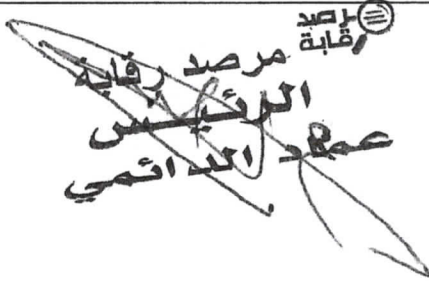 مرصد
رقابة
مرصد رقابة
الرئيس
عماد الدائمي